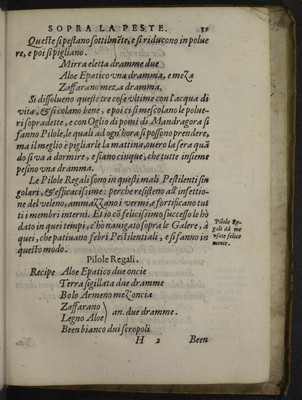 SOPRA LA PESTE. 59
Queste si pestano sottilmẽte, e si riducono in polue
re, e poi si pigliano.
Mirra eletta dramme due
Aloe Epatico vna dramma, e meza
Zaffarano meza dramma.
Si dissolueno queste tre cose vltime con l'acqua di
vita, & si colano bene, e poi ci si mescolano le polue-
ri sopradette, e con Oglio di pomi di Mandragora si
fanno Pilole, le quali ad ogn'hora si possono prendere,
ma il meglio è pigliarle la mattina, ouero la sera quã
do si va à dormire, e siano cinque, che tutte insieme
pesino vna dramma.
Le Pilole Regali sono in questi mali Pestilenti sin
golari, & efficacissime: perche resisteno all'infettio-
ne del veleno, ammazzano i vermi, e fortificano tut
ti i membri interni. Et io cõ felicissimo successo le hò
dato in quei tempi, c'hò nauigato sopra le Galere, à
quei, che patiuano febri Pestilentiali, e si fanno in
questo modo.
Pilole Re-
gali da me
vsate felice
mente.
Pilole Regali.
Recipe Aloe Epatico due oncie
Terra sigillata due dramme
Bolo Armeno mez'oncia
Zaffarano
Legno Aloe } an. due dramme.
Been bianco dui scropoli
H 2 Been